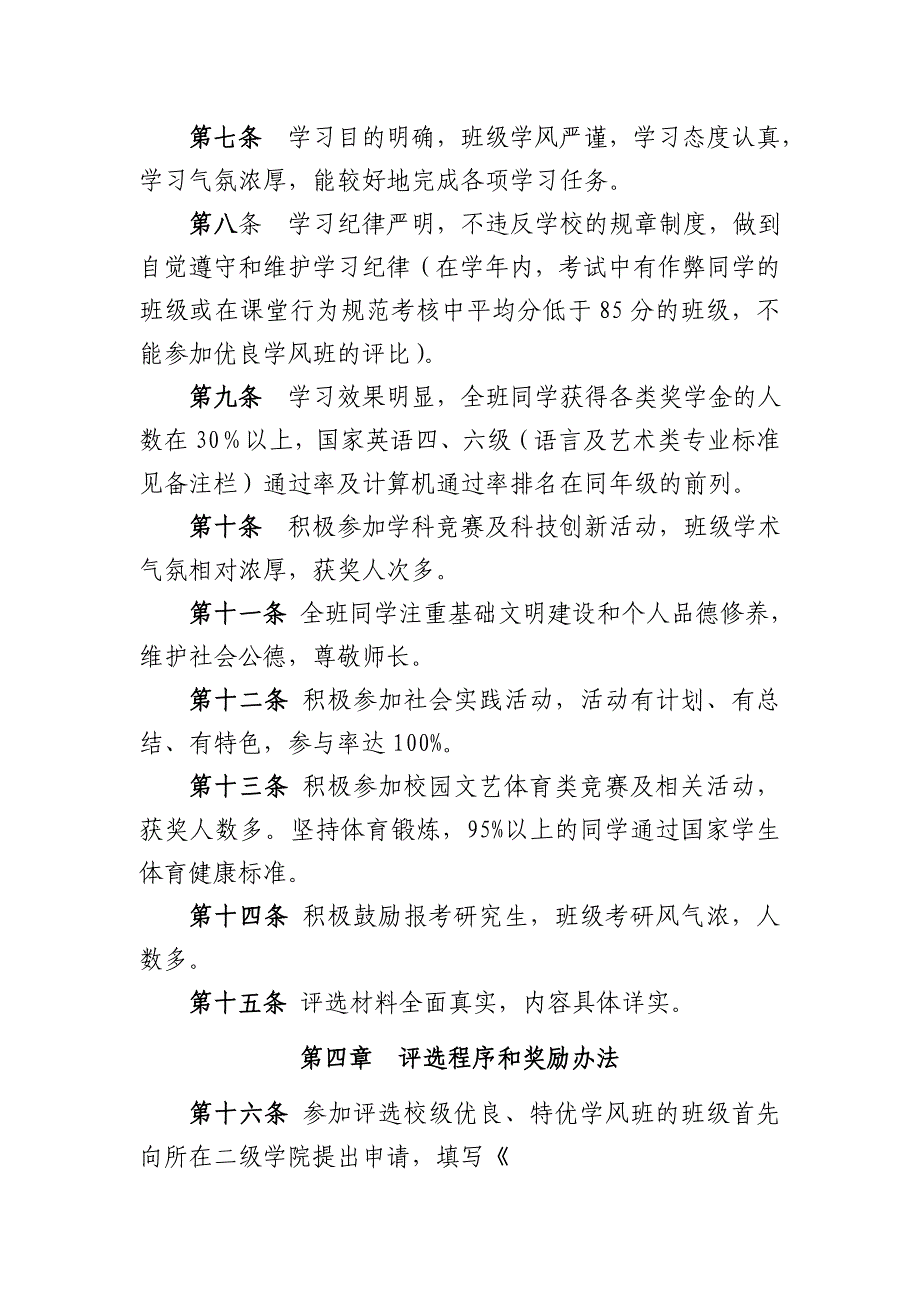 第七条　学习目的明确，班级学风严谨，学习态度认真，
学习气氛浓厚，能较好地完成各项学习任务。
第八条　学习纪律严明，不违反学校的规章制度，做到
自觉遵守和维护学习纪律（在学年内，考试中有作弊同学的
班级或在课堂行为规范考核中平均分低于 85 分的班级，不
能参加优良学风班的评比）。
第九条　学习效果明显，全班同学获得各类奖学金的人
数在 30％以上，国家英语四、六级（语言及艺术类专业标准
见备注栏）通过率及计算机通过率排名在同年级的前列。
第十条　积极参加学科竞赛及科技创新活动，班级学术
气氛相对浓厚，获奖人次多。
第十一条 全班同学注重基础文明建设和个人品德修养，
维护社会公德，尊敬师长。
第十二条 积极参加社会实践活动，活动有计划、有总
结、有特色，参与率达 100%。
第十三条 积极参加校园文艺体育类竞赛及相关活动，
获奖人数多。坚持体育锻炼，95%以上的同学通过国家学生
体育健康标准。
第十四条 积极鼓励报考研究生，班级考研风气浓，人
数多。
第十五条 评选材料全面真实，内容具体详实。
第四章　评选程序和奖励办法
第十六条 参加评选校级优良、特优学风班的班级首先
向所在二级学院提出申请，填写《